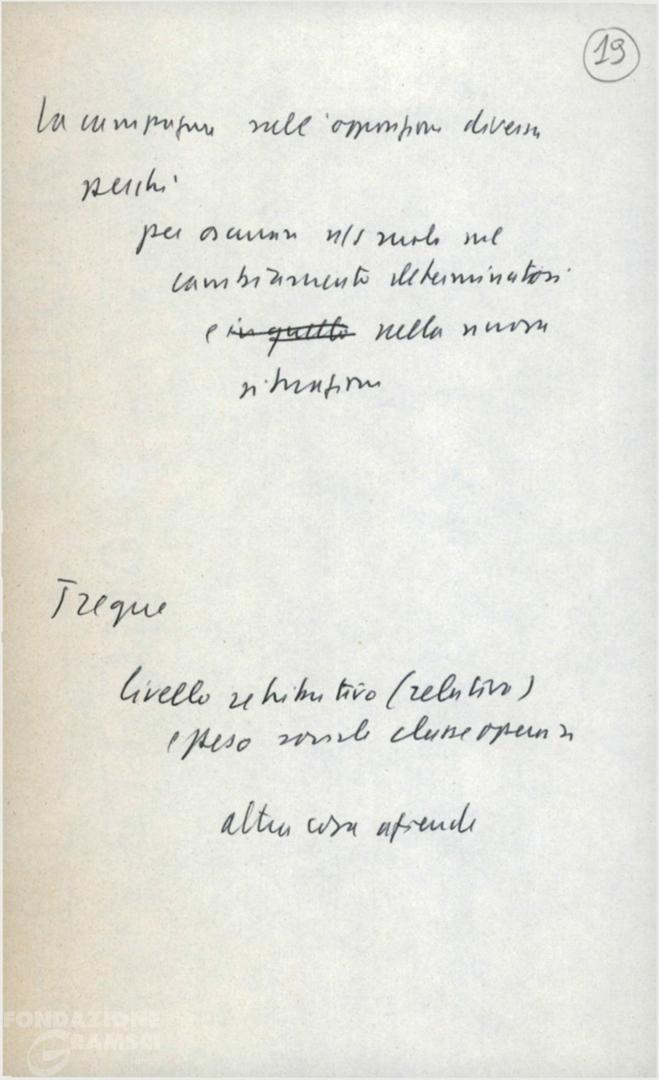 19
La campagna sull'opposizione diversa
perché
per oscurare n/s ruolo nel
cambiamento determinatosi
e in quello nella nuova
situazione
Tregue
livello retributivo (relativo)
e peso sociale classe operaia
altra cosa aziende
FONDAZIONE
GRAMSCI